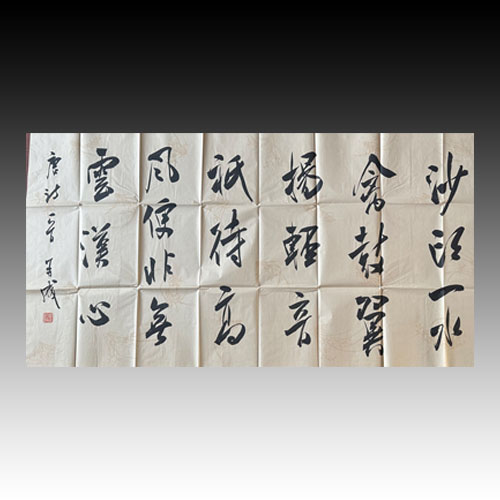 沙頭一水
禽鼓翼
揚輕音
祇待高
風便非無
雲漢心
唐詩一首